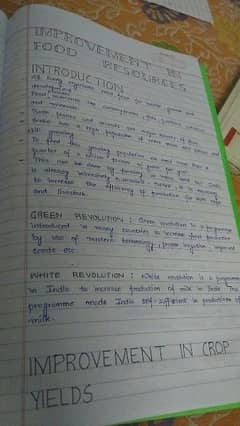 IMPROVEMENT IN
FOOD RESOURCES
INTRODUCTION
All living organisms need food for
development
Food
and minerals
Both plants and animals are major source of
India has a high population of more than one billion and
still growing
To feed this growing population we need more than a
quarter of a billion tonnes of grain
This can be done by farming on
is already intensively
to increase the efficiency of production for both crops
and livestock.
GREEN REVOLUTION : Green revolution is a programme
introduced in many countries to increase food production
by use of modern technology, proper irrigation, improved
seeds etc.
WHITE REVOLUTION : White revolution is a programme
in India to increase production of milk in India. This
programme made India self-sufficient in production of
milk.
IMPROVEMENT IN CROP
YIELDS